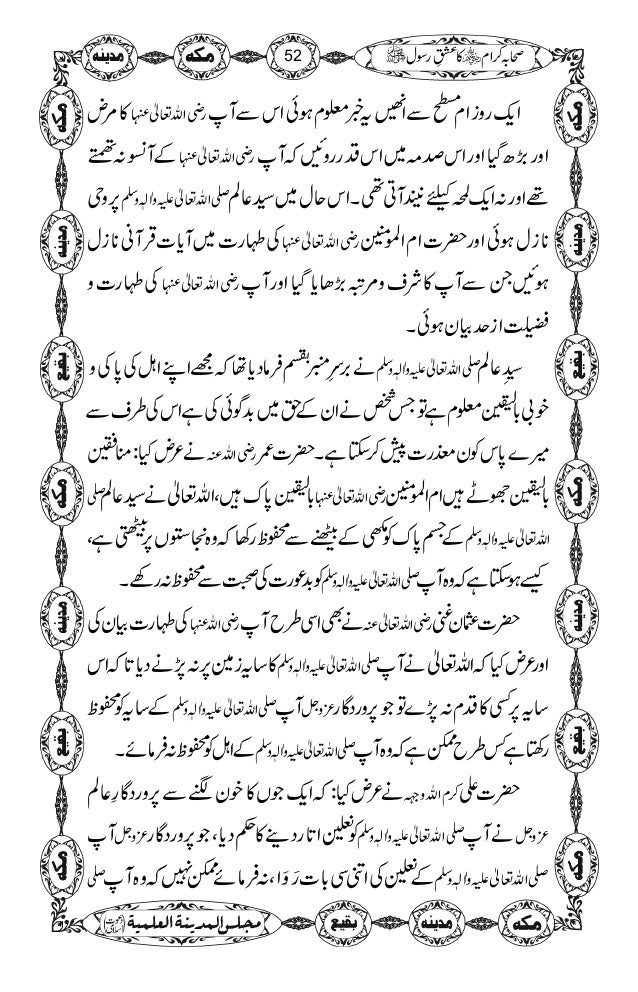 مدینہ مکہ 52 صحابہ کرام رضی اللہ عنہم کا عشق رسول صلی اللہ علیہ وسلم
ایک روز ام مسطح سے انھیں یہ خبر معلوم ہوئی اس سے آپ رضی اللہ تعالیٰ عنہا کا مرض
اور بڑھ گیا اور اس صدمہ میں اس قدر روئیں کہ آپ رضی اللہ تعالیٰ عنہا کے آنسو نہ تھمتے
تھے اور نہ ایک لمحہ کیلئے نیند آتی تھی۔ اس حال میں سید عالم صلی اللہ تعالیٰ علیہ والہٖ وسلم پر وحی
نازل ہوئی اور حضرت ام المومنین رضی اللہ تعالیٰ عنہا کی طہارت میں آیات قرآنی نازل
ہوئیں جن سے آپ کا شرف و مرتبہ بڑھایا گیا اور آپ رضی اللہ تعالیٰ عنہا کی طہارت و
فضیلت از حد بیان ہوئی۔
سیدِ عالم صلی اللہ تعالیٰ علیہ والہٖ وسلم نے برسرِ منبر بقسم فرما دیا تھا کہ مجھے اپنے اہل کی پاکی و
خوبی بالیقین معلوم ہے تو جس شخص نے ان کے حق میں بدگوئی کی ہے اس کی طرف سے
میرے پاس کون معذرت پیش کرسکتا ہے۔ حضرت عمر رضی اللہ عنہ نے عرض کیا: منافقین
بالیقین جھوٹے ہیں ام المومنین رضی اللہ تعالیٰ عنہا بالیقین پاک ہیں، اللہ تعالیٰ نے سید عالم صلی
اللہ تعالیٰ علیہ والہٖ وسلم کے جسم پاک کو مکھی کے بیٹھنے سے محفوظ رکھا کہ وہ نجاستوں پر بیٹھتی ہے،
کیسے ہوسکتا ہے کہ وہ آپ صلی اللہ تعالیٰ علیہ والہٖ وسلم کو بد عورت کی صحبت سے محفوظ نہ رکھے۔
حضرت عثمان غنی رضی اللہ تعالیٰ عنہ نے بھی اسی طرح آپ رضی اللہ عنہا کی طہارت بیان کی
اور عرض کیا کہ اللہ تعالیٰ نے آپ صلی اللہ تعالیٰ علیہ والہٖ وسلم کا سایہ زمین پر نہ پڑنے دیا تا کہ اس
سایہ پر کسی کا قدم نہ پڑے تو جو پروردگار عزوجل آپ صلی اللہ تعالیٰ علیہ والہٖ وسلم کے سایہ کو محفوظ
رکھتا ہے کس طرح ممکن ہے کہ وہ آپ صلی اللہ تعالیٰ علیہ والہٖ وسلم کے اہل کو محفوظ نہ فرمائے۔
حضرت علی کرم اللہ وجہہ نے عرض کیا: کہ ایک جوں کا خون لگنے سے پروردگارِ عالم
عزوجل نے آپ صلی اللہ تعالیٰ علیہ والہٖ وسلم کو نعلین اتار دینے کا حکم دیا، جو پروردگار عزوجل آپ
صلی اللہ تعالیٰ علیہ والہٖ وسلم کے نعلین کی اتنی سی بات رَوَا، نہ فرمائے ممکن نہیں کہ وہ آپ صلی
مکہ
مدینہ
بقیع
مکہ
مدینہ
بقیع
مکہ
مکہ
مدینہ
بقیع
مکہ
مدینہ
بقیع
مکہ
مکہ مدینہ بقیع مجلس المدینۃ العلمیۃ